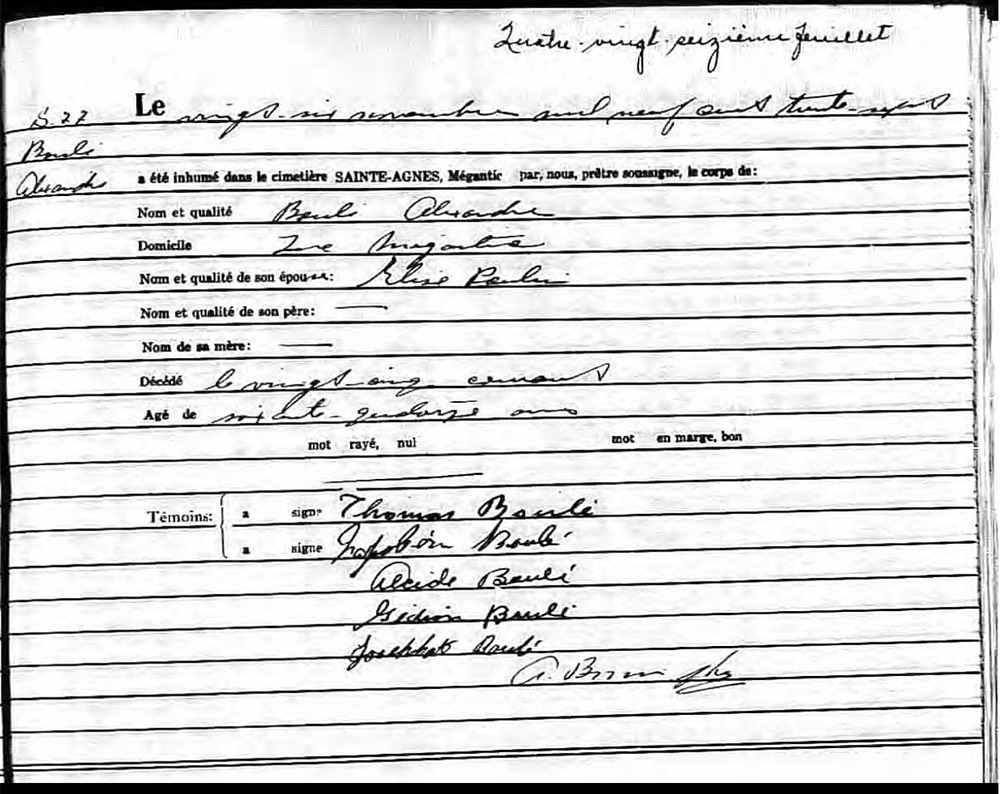 Quatre-vingt-seizième feuillet
S. 27
Le vingt-six novembre mil neuf cent trente-sept
Boulé
Alexandre
a été inhumé dans le cimetière SAINTE-AGNES, Mégantic par, nous, prêtre soussigne, le corps de:
Nom et qualité Boulé Alexandre
Domicile Lac Mégantic
Nom et qualité de son épouse: Elise Poulin
Nom et qualité de son père: ——
Nom de sa mère: ——
Décédé le vingt-cinq courant
Agé de soixante-quatorze ans
mot rayé, nul mot en marge, bon
Témoins: a signe Thomas Boulé
a signe Napoléon Boulé
Alcide Boulé
Gédéon Boulé
Josephat Boulé